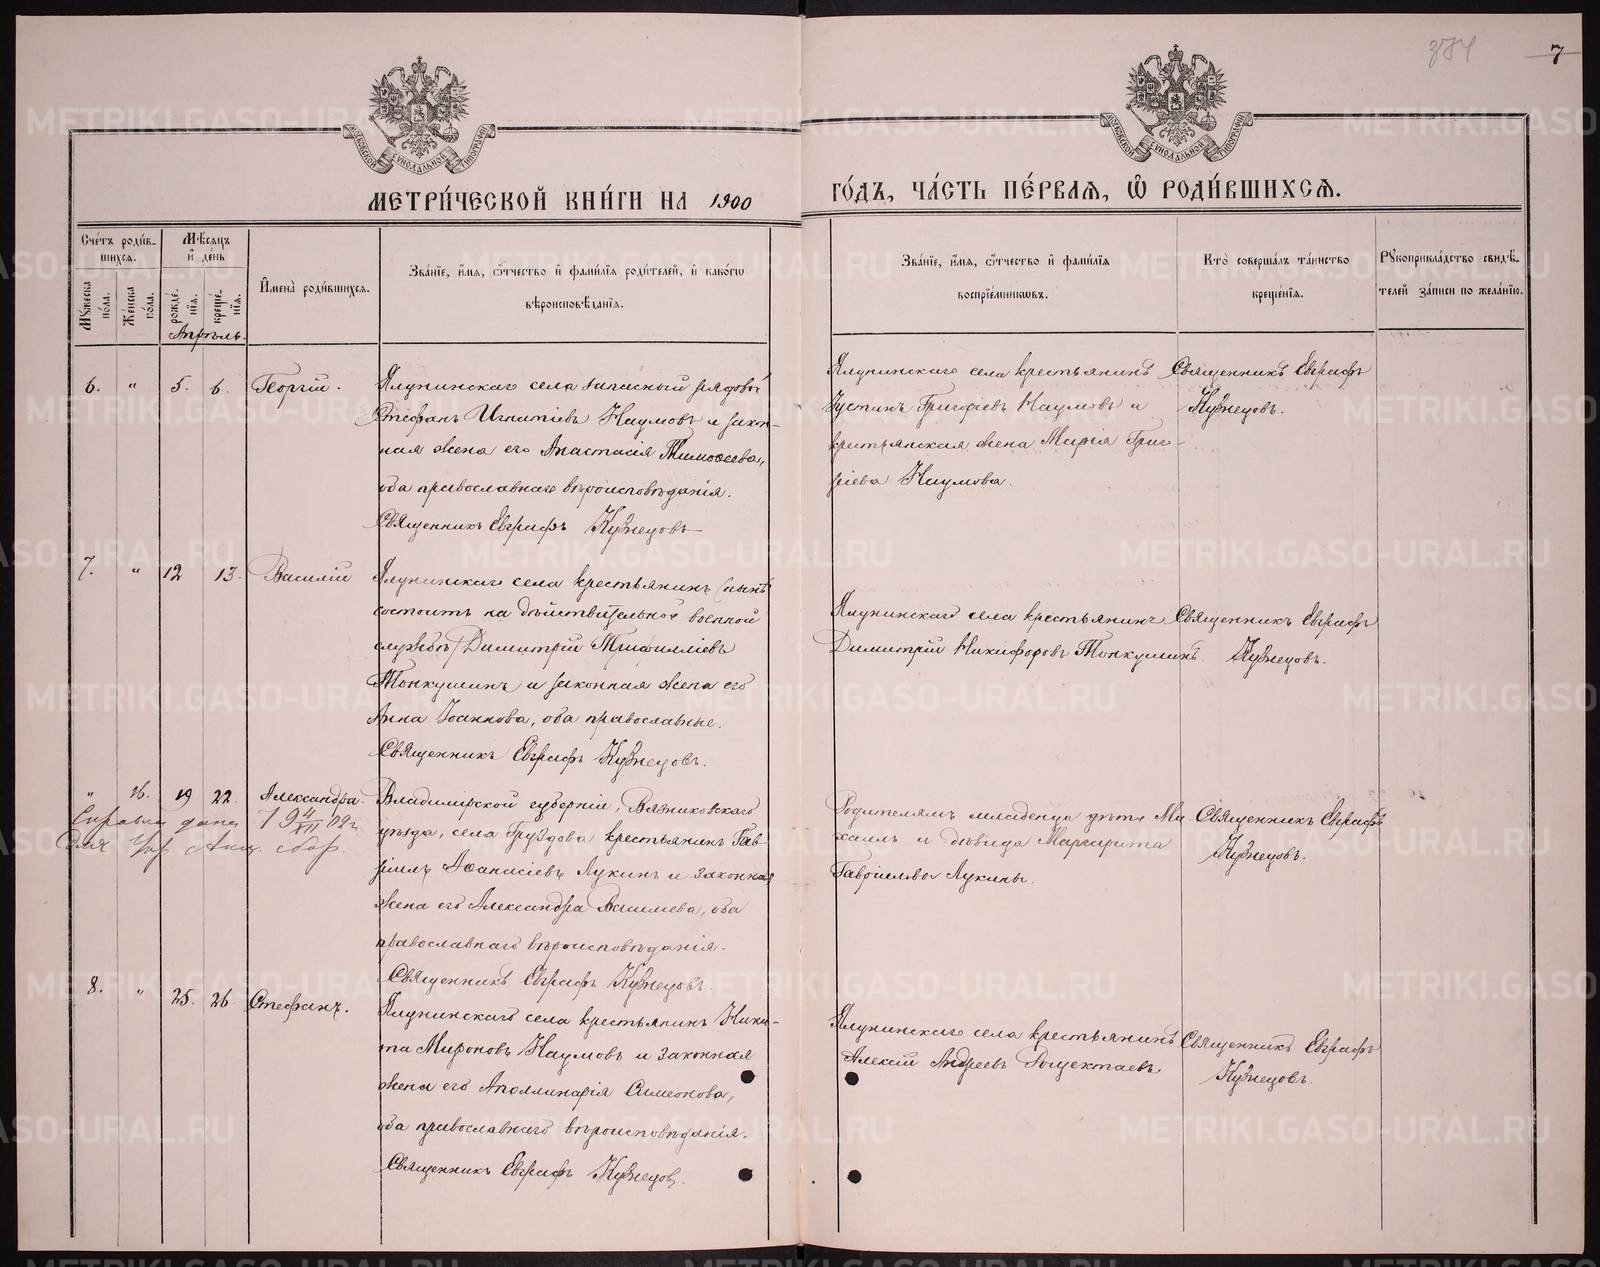 384
7
МЕТРИ́ЧЕСКОЙ КНИ́ГИ НА 1900
ГО́ДЪ, ЧА́СТЬ ПЕ́РВАѦ, Ѡ҆ РОДИ́ВШИХСѦ.
Сче́тъ роди́в-
шихсѧ.
Мꙋ́жеска по́ла.
Же́нска по́ла.
Мѣ́сѧцъ
и҆ де́нь
рожде́-
нїѧ.
креще́-
нїѧ.
Апрѣль.
И҆мена̀ роди́вшихсѧ.
Зва́нїе, и҆́мѧ, ѻ҆́тчество и҆ фами́лїѧ роди́телей, и҆ како́гѡ
вѣроисповѣ́данїѧ.
Зва́нїе, и҆́мѧ, ѻ҆́тчество и҆ фами́лїѧ
воспрїе́мникѡвъ.
Кто̀ соверша́лъ та́инство
креще́нїѧ.
Рꙋкоприкла́дство свидѣ́-
телей за́писи по жела́нїю.
6. " 5. 6. Георгій.
Ялунинскаго села запасный рядовой
Стефанъ Игнатіевъ Наумовъ и закон-
ная жена его Анастасія Тимоѳеева,
оба православнаго вѣроисповѣданія.
Священникъ Евграфъ Кузнецовъ
Ялунинскаго села крестьянинъ
Іустинъ Григоріевъ Наумовъ и
крестьянская жена Марія Григо-
ріева Наумова.
Священникъ Евграфъ
Кузнецовъ.
7. " 12 13. Василій
Ялунинскаго села крестьянинъ (нынѣ
состоитъ на дѣйствительной военной
службѣ) Димитрій Трифилліевъ
Тонкушинъ и законная жена его
Анна Іоаннова, оба православные.
Священникъ Евграфъ Кузнецовъ.
Ялунинскаго села крестьянинъ
Димитрій Никифоровъ Тонкушинъ
Священникъ Евграфъ
Кузнецовъ.
" 16. 19 22 Александра.
Справка дана
Владимірской губерніи, Вязниковскаго
уѣзда, села Груздова крестьянинъ Гав-
ріилъ Аѳанасіевъ Лукинъ и законная
жена его Александра Васильева, оба
православнаго вѣроисповѣданія.
Священникъ Евграфъ Кузнецовъ.
Родителямъ младенца дѣти Ми
хаилъ и дѣвица Маргарита
Гавріиловы Лукины.
Священникъ Евграфъ
Кузнецовъ.
8. " 25. 26. Стефанъ.
Ялунинскаго села крестьянинъ Ники-
та Мироновъ Наумовъ и законная
жена его Аполлинарія Симеонова,
оба православнаго вѣроисповѣданія.
Священникъ Евграфъ Кузнецовъ.
Ялунинскаго села крестьянинъ
Алексій Андреевъ
Священникъ Евграфъ
Кузнецовъ.
METRIKI.GASO-URAL.RU